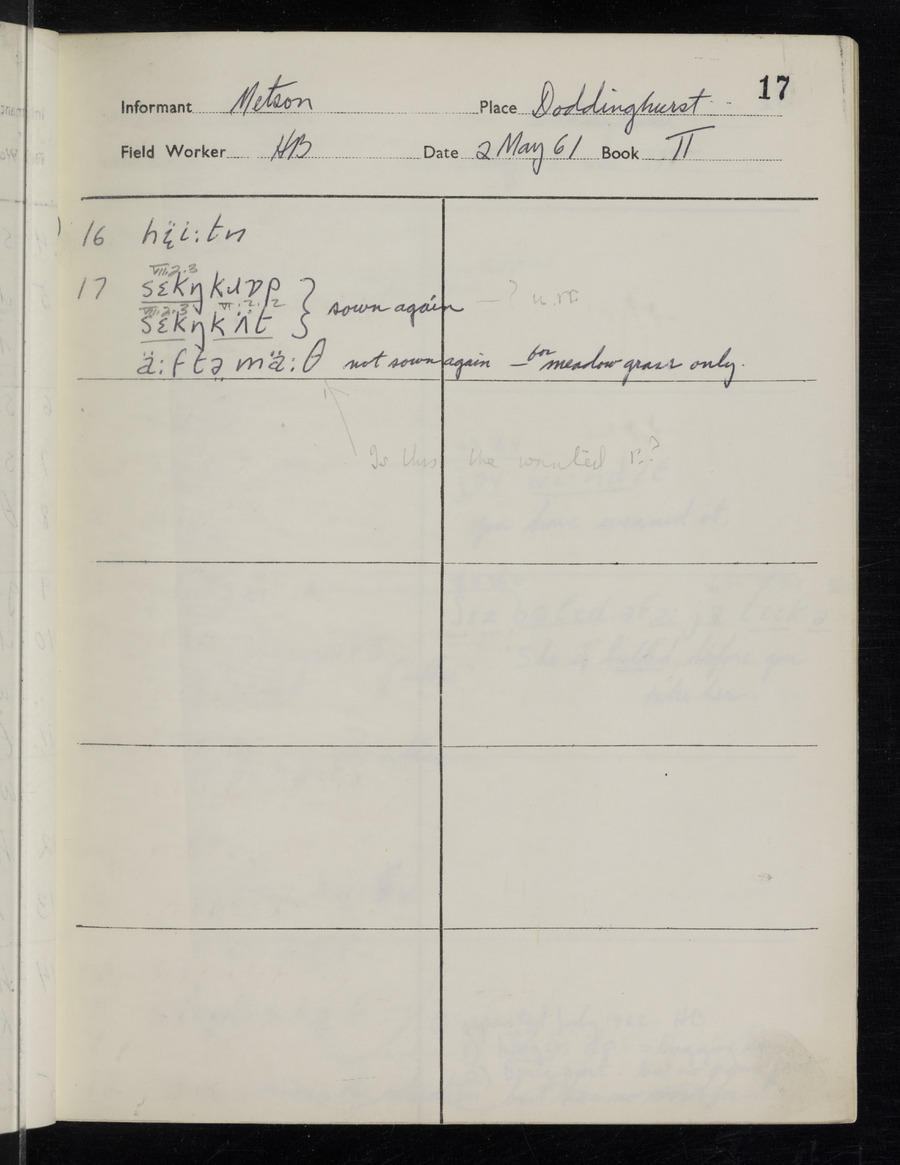 17
Informant Metson Place Doddinghurst
Field Worker HB Date 2 May 61 Book II
16 hïi:tn
VII.2.3
17 sɛkŋ kɹɒp } sown again – ? u.rr.
VII.2.3 VI.2.2
sɛkŋ kʌ̈t
ä:ftə mä:θ not sown again – for meadow grass only.
Is this the wanted r.?